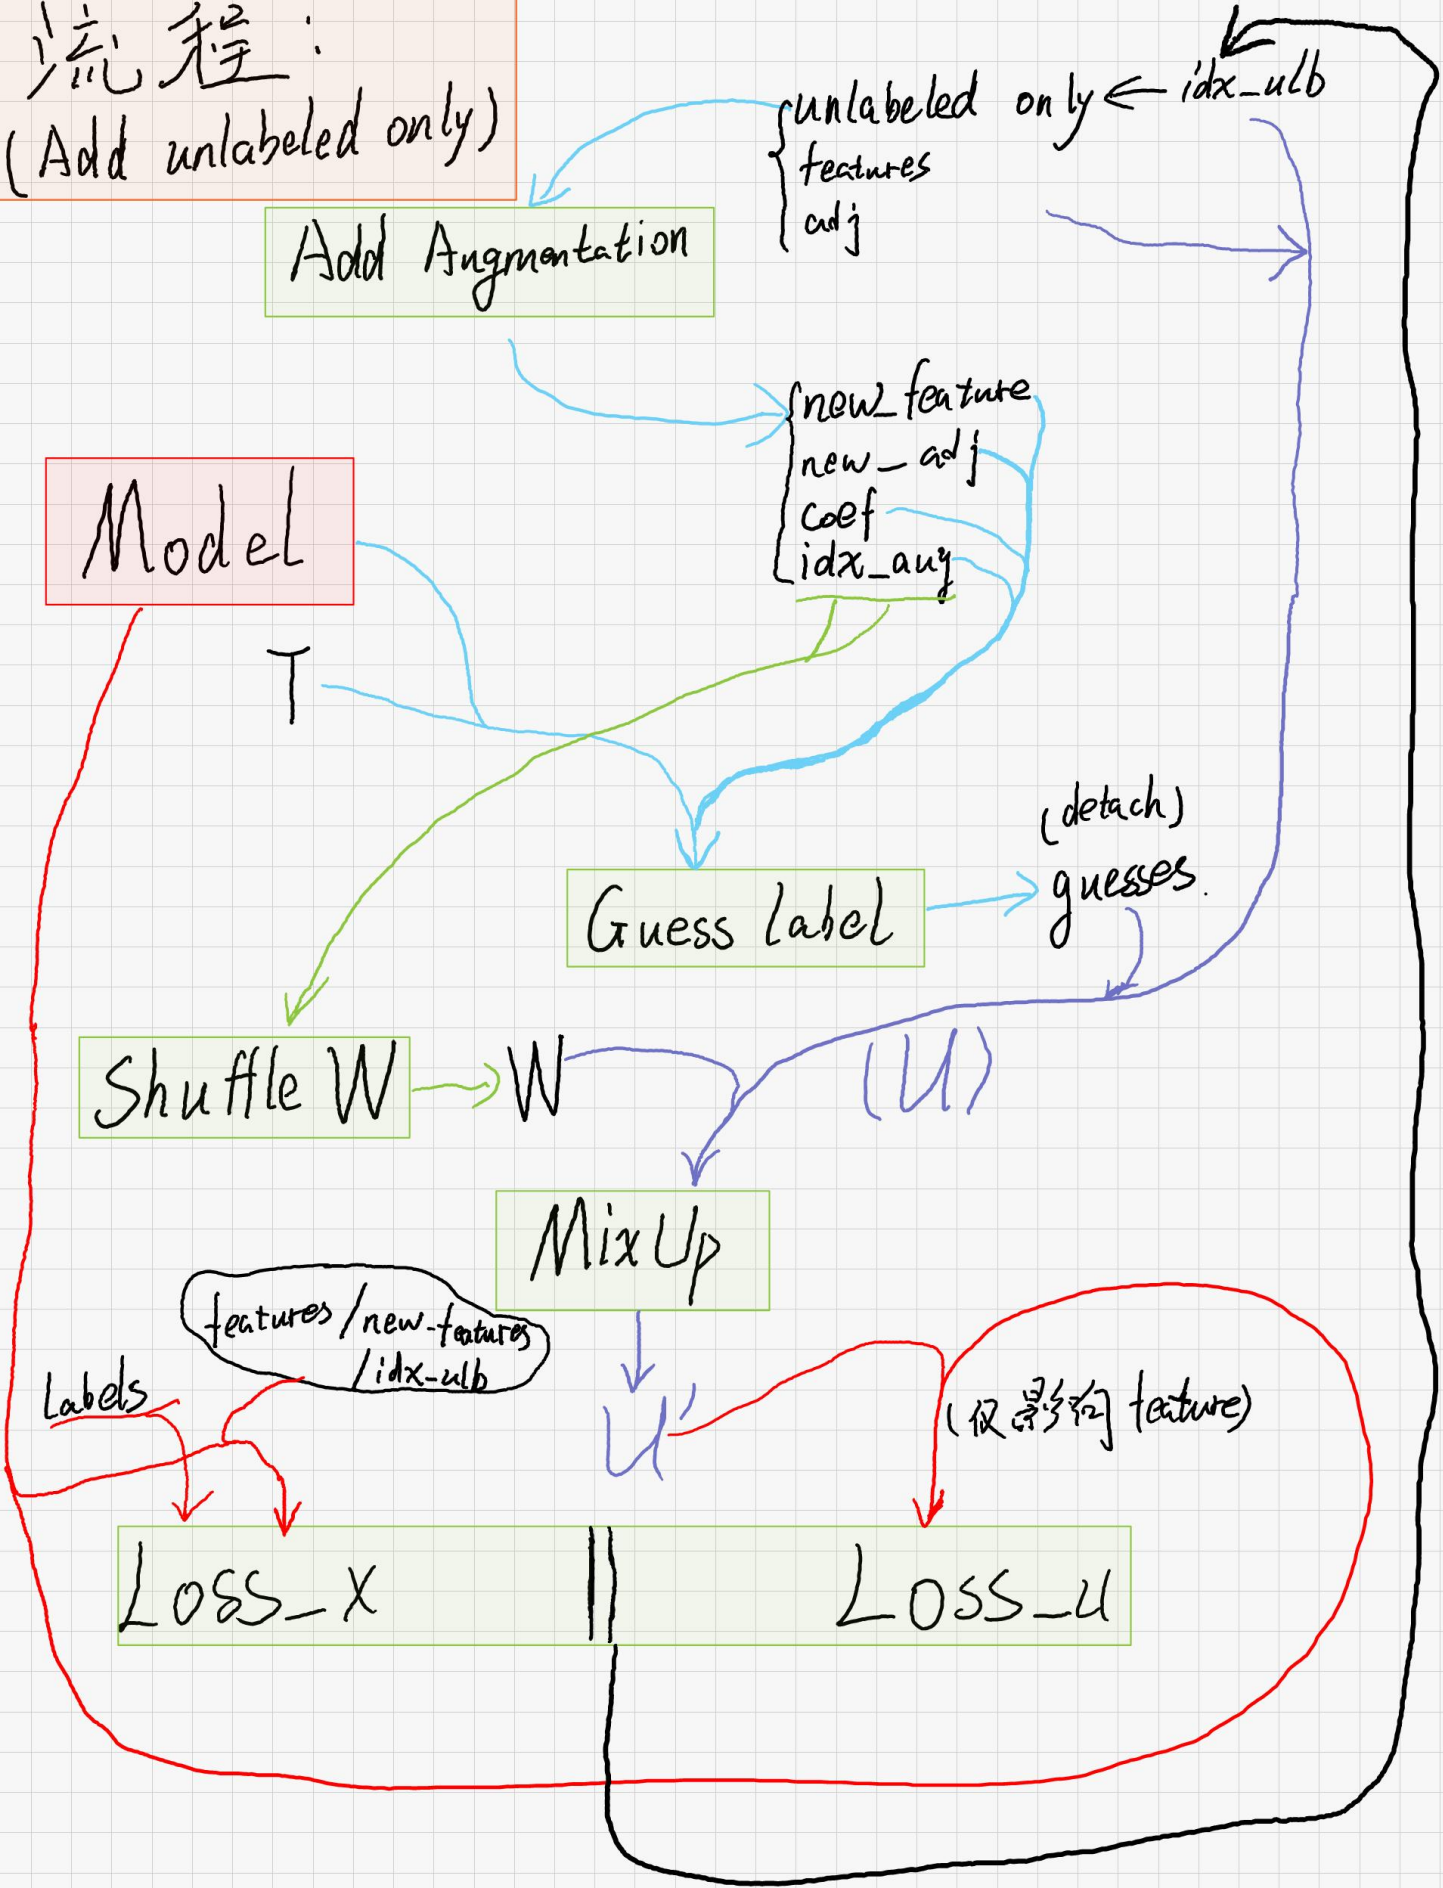 流程：
(Add unlabeled only)
unlabeled only ← idx_ulb
features
adj
Add Augmentation
new_feature
new_adj
coef
idx_aug
Model
T
(detach)
guesses.
Guess label
Shuffle W
W
(U)
MixUp
features/new-features
/idx-ulb
Labels
U'
(仅影响 feature)
Loss_x
Loss_u